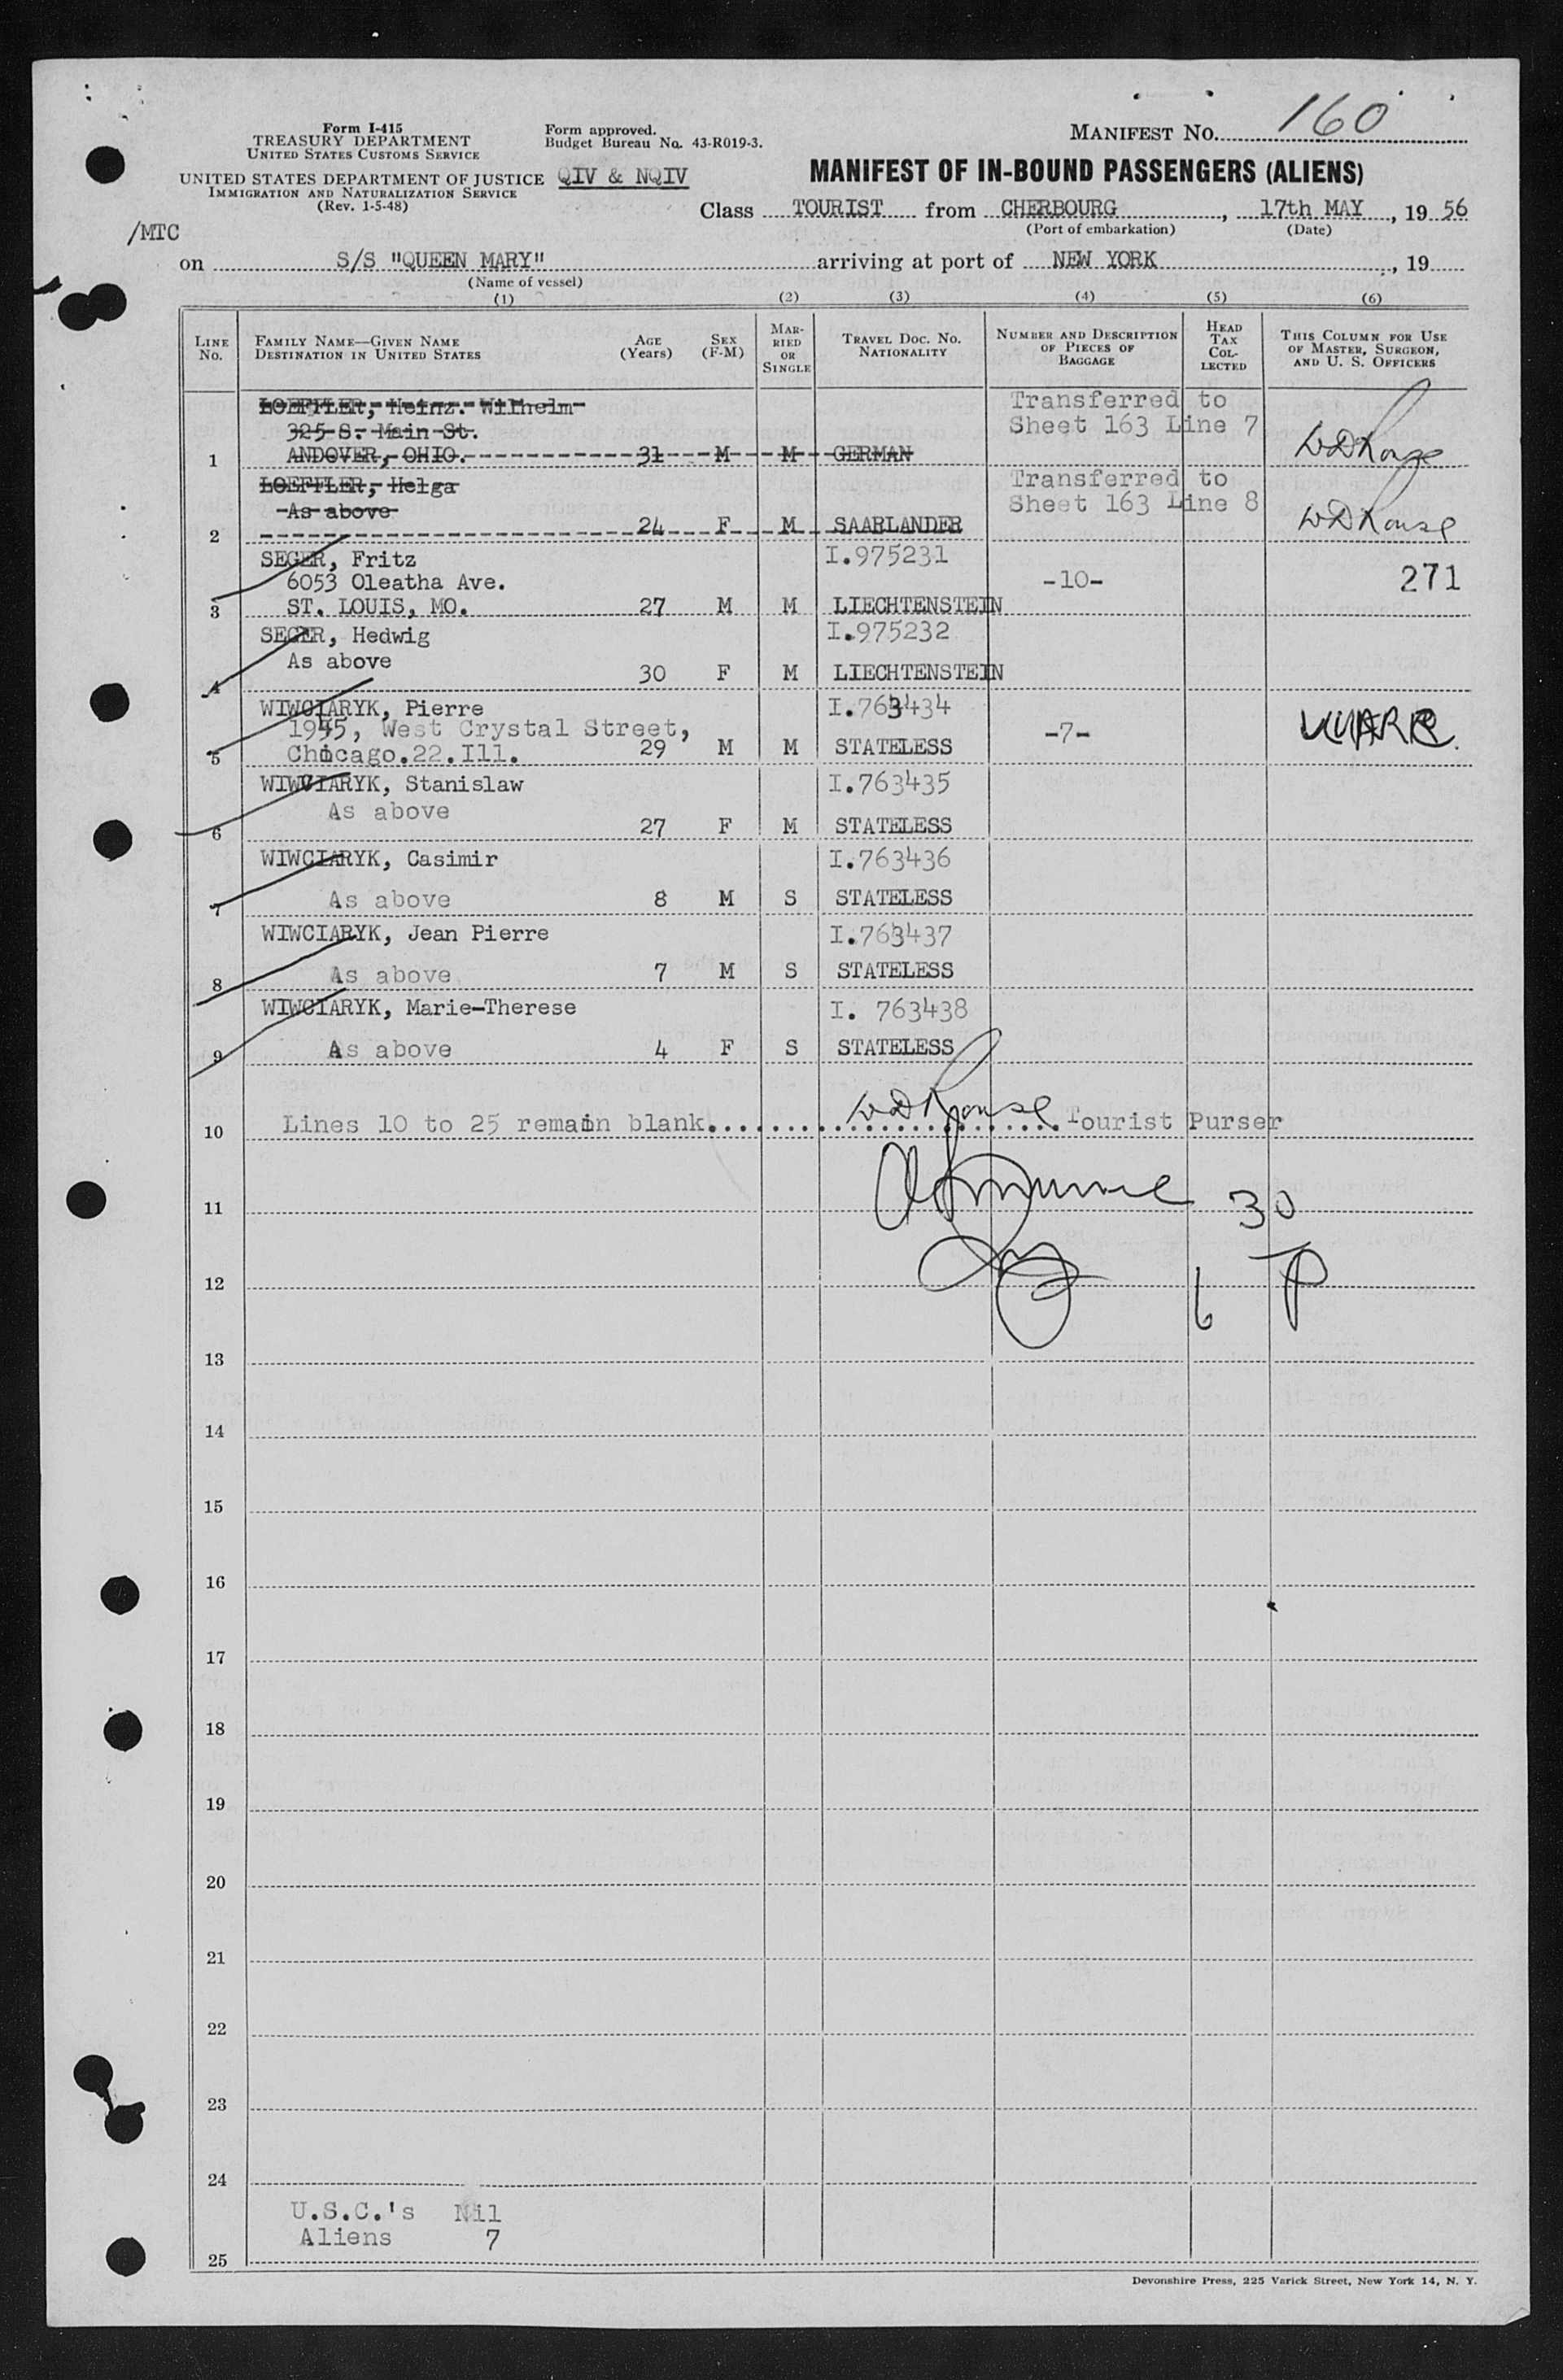 Form I-415
TREASURY DEPARTMENT
UNITED STATES CUSTOMS SERVICE
UNITED STATES DEPARTMENT OF JUSTICE
IMMIGRATION AND NATURALIZATION SERVICE
(Rev. 1-5-48)
Form approved.
Budget Bureau No. 43-R019-3.
QIV & NQIV
MANIFEST NO. 160
MANIFEST OF IN-BOUND PASSENGERS (ALIENS)
Class TOURIST from CHERBOURG, 17th MAY, 19 56
(Port of embarkation) (Date)
/MTC
on S/S "QUEEN MARY" arriving at port of NEW YORK, 19
(Name of vessel)
(1) (2) (3) (4) (5) (6)
LINE NO.
FAMILY NAME—GIVEN NAME
DESTINATION IN UNITED STATES
AGE (Years)
SEX (F-M)
MARRIED OR SINGLE
TRAVEL DOC. NO. NATIONALITY
NUMBER AND DESCRIPTION OF PIECES OF BAGGAGE
HEAD TAX COLLECTED
THIS COLUMN FOR USE OF MASTER, SURGEON, AND U. S. OFFICERS
LOEFFLER, Heinz. Wilhelm Transferred to
325 S. Main St. Sheet 163 Line 7
1 ANDOVER, OHIO. 31 M M GERMAN WDRouse
LOEFFLER, Helga Transferred to
As above Sheet 163 Line 8
2 24 F M SAARLANDER WDRouse
SEGER, Fritz I.975231
6053 Oleatha Ave. -10- 271
3 ST. LOUIS, MO. 27 M M LIECHTENSTEIN
SEGER, Hedwig I.975232
As above
4 30 F M LIECHTENSTEIN
WIWCIARYK, Pierre I.763434
1945, West Crystal Street, -7-
5 Chicago.22.Ill. 29 M M STATELESS
WIWCIARYK, Stanislaw I.763435
As above
6 27 F M STATELESS
WIWCIARYK, Casimir I.763436
7 As above 8 M S STATELESS
WIWCIARYK, Jean Pierre I.763437
8 As above 7 M S STATELESS
WIWCIARYK, Marie-Therese I. 763438
9 As above 4 F S STATELESS
10 Lines 10 to 25 remain blank. WDRouse Tourist Purser
11 30
12 6 P
13
14
15
16
17
18
19
20
21
22
23
24
U.S.C.'s Nil
Aliens 7
25
Devonshire Press, 225 Varick Street, New York 14, N. Y.